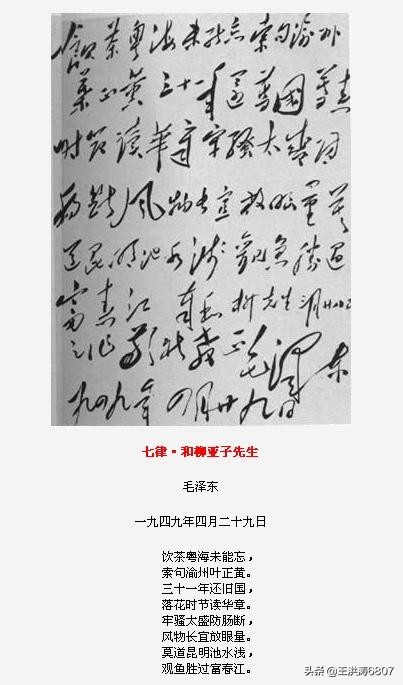 飲茶粤海未能忘索句渝州
葉正黄三十一年還舊國落花
时節讀華章牢騷太盛防
腸斷風物长宜放眼量莫
道昆明池水浅觀魚勝過
富春江 奉和柳先生三月廿八日
之作敬祈教正 毛泽东
一九四九年四月廿九日
七律·和柳亚子先生
毛泽东
一九四九年四月二十九日
饮茶粤海未能忘,
索句渝州叶正黄。
三十一年还旧国,
落花时节读华章。
牢骚太盛防肠断,
风物长宜放眼量。
莫道昆明池水浅,
观鱼胜过富春江。
头条 @王洪涛6807